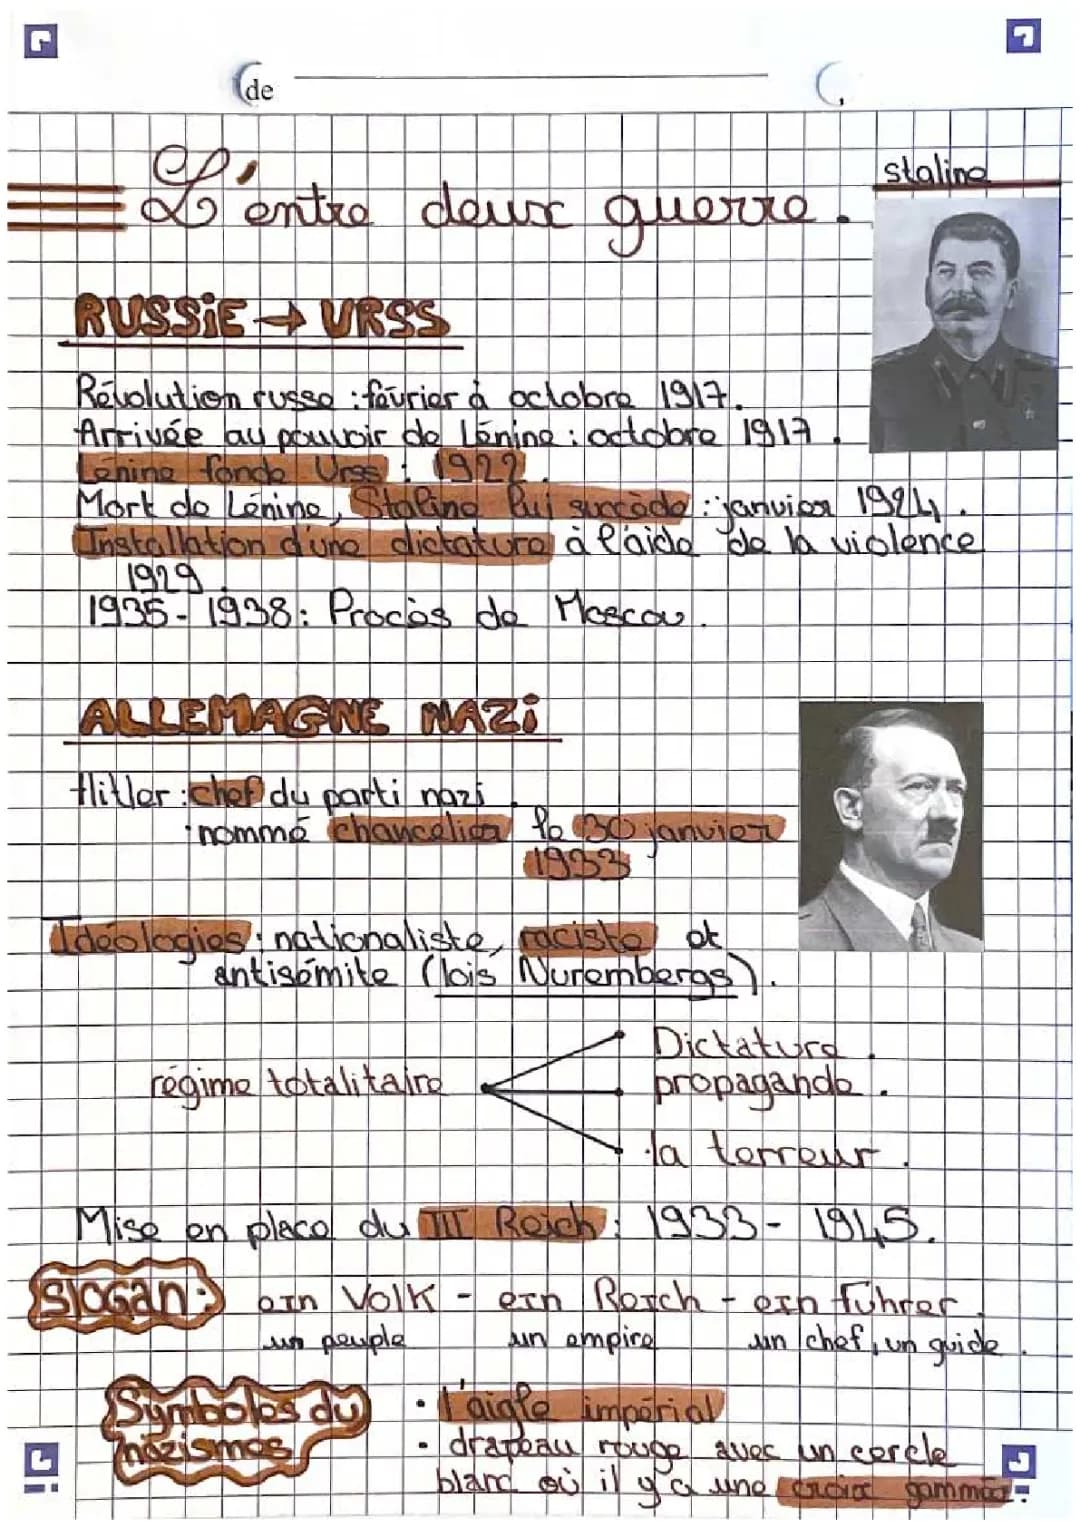 de
staline
L'entre deux guerre.
RUSSIE → URSS
Révolution russe : février à octobre 1917.
Arrivée au pouvoir de Lénine : octobre 1917.
Lénine fonde Urss : 1922.
Mort de Lénine, Staline lui succède : janvier 1924.
Installation d'une dictature à l'aide de la violence
1929.
1935-1938 : Procès de Moscou.
ALLEMAGNE NAZI
Hitler : chef du parti nazi.
: nommé chancelier le 30 janvier
1933
Idéologies : nationaliste, raciste et
antisémite (lois Nurembergs).
régime totalitaire
Dictature.
propagande.
la terreur.
Mise en place du III Reich : 1933-1945.
Slogan :
ein Volk - ein Reich - ein Führer.
un peuple un empire un chef, un guide.
Symboles du
nazismes
• l'aigle impérial
• drapeau rouge avec un cercle
blanc où il y a une croix gammée.